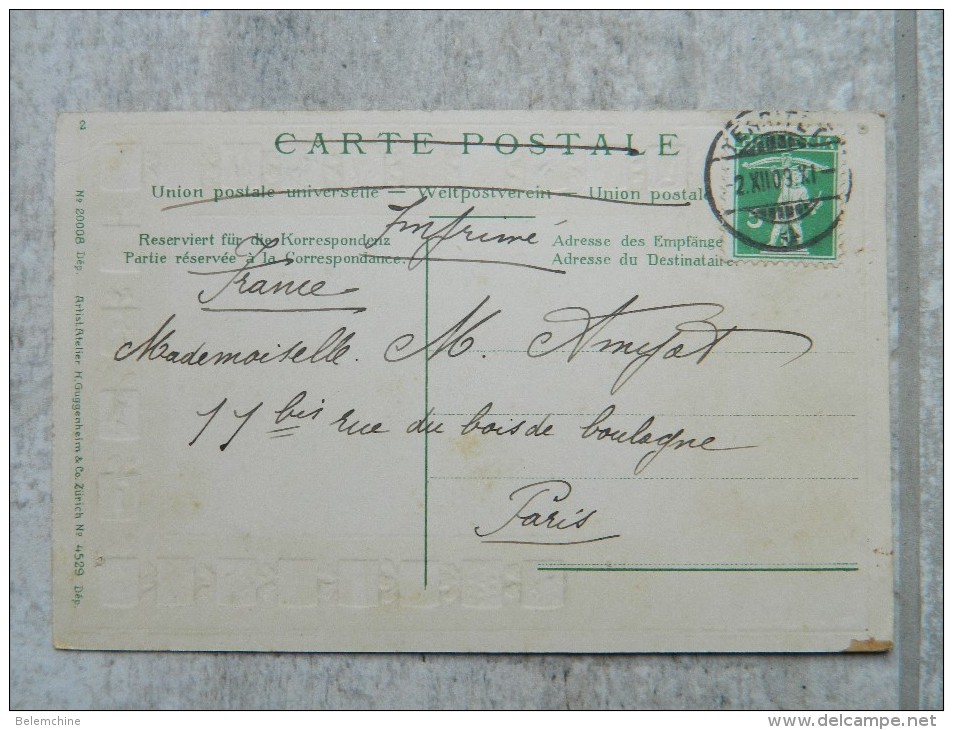 CARTE POSTALE
Union postale universelle — Weltpostverein — Union postale
Imprimé
Reserviert für die Korrespondenz
Partie réservée à la Correspondance.
Adresse des Empfänge
Adresse du Destinataire
2.XII.09.XI
5
France
Mademoiselle. M. Amyot
11 bis rue du bois de boulogne
Paris
2
No 20008 Dép. Artist. Atelier H. Guggenheim & Co. Zürich No 4529 Dép.
Belemchine
www.delcampe.net